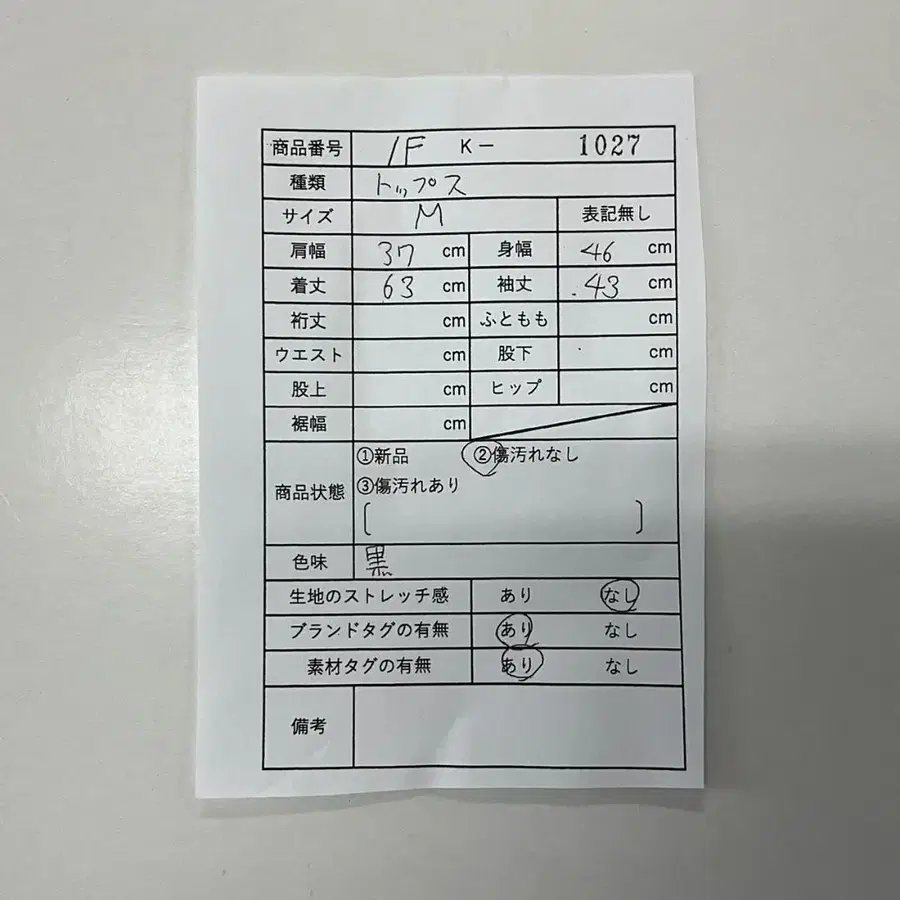 商品番号 1F K- 1027
種類 トップス
サイズ M 表記無し
肩幅 37 cm 身幅 46 cm
着丈 63 cm 袖丈 43 cm
裄丈 cm ふともも cm
ウエスト cm 股下 cm
股上 cm ヒップ cm
裾幅 cm
①新品 ②傷汚れなし
商品状態 ③傷汚れあり
[ ]
色味 黒
生地のストレッチ感 あり なし
ブランドタグの有無 あり なし
素材タグの有無 あり なし
備考